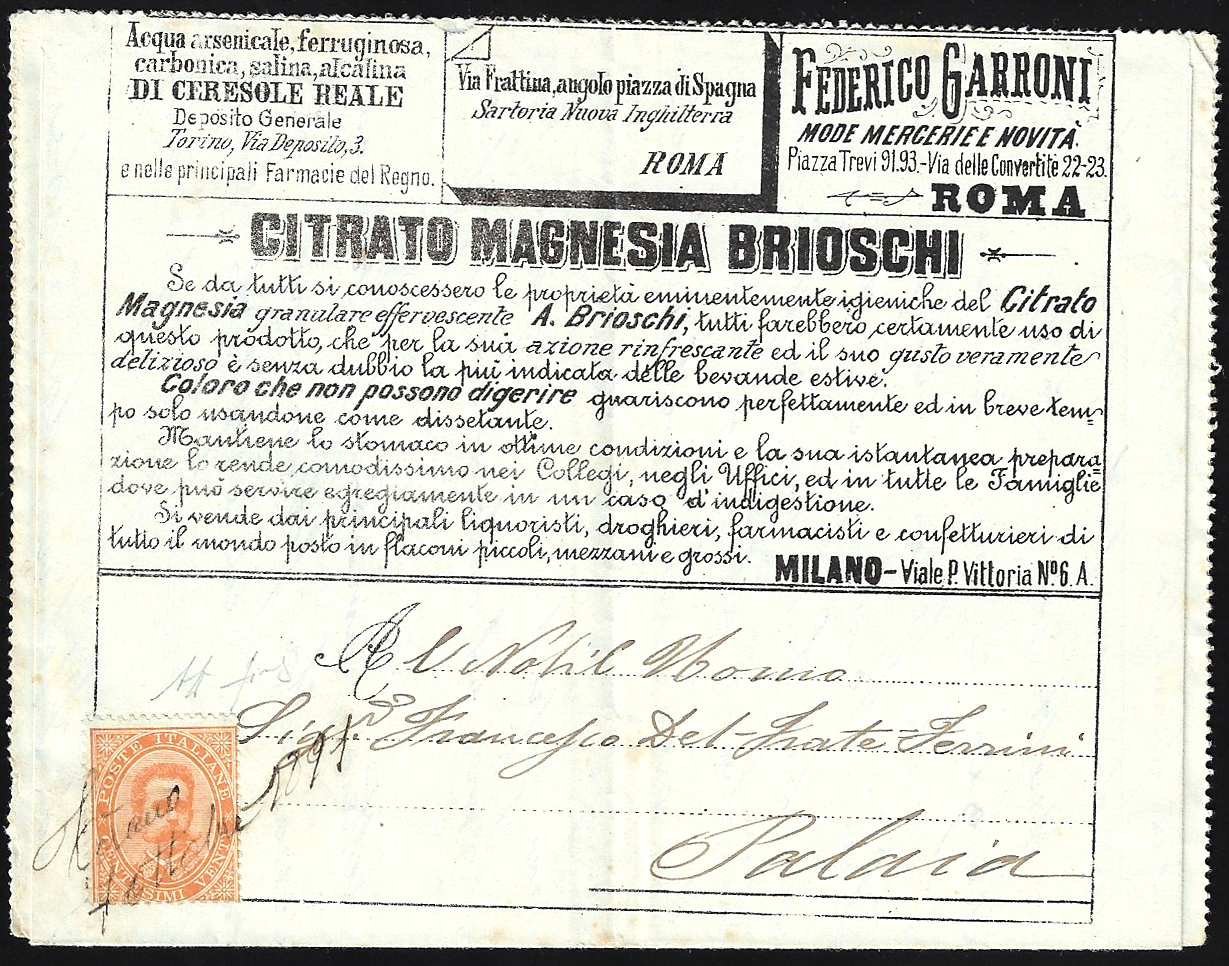 Acqua arsenicale, ferruginosa,
carbonica, salina, alcalina
DI CERESOLE REALE
Deposito Generale
Torino, Via Deposito, 3.
e nelle principali Farmacie del Regno.
Via Frattina, angolo piazza di Spagna
Sartoria Nuova Inghilterra
ROMA
FEDERICO GARRONI
MODE MERCERIE E NOVITÀ
Piazza Trevi 91.93.-Via delle Convertite 22-23.
ROMA
CITRATO MAGNESIA BRIOSCHI
Se da tutti si conoscessero le proprietà eminentemente igieniche del Citrato
Magnesia granulare effervescente A. Brioschi, tutti farebbero certamente uso di
questo prodotto, che per la sua azione rinfrescante ed il suo gusto veramente
delizioso è senza dubbio la più indicata delle bevande estive.
Coloro che non possono digerire guariscono perfettamente ed in breve tem=
po solo usandone come dissetante.
Mantiene lo stomaco in ottime condizioni e la sua istantanea prepara=
zione lo rende comodissimo nei Collegi, negli Uffici, ed in tutte le Famiglie
dove può servire egregiamente in un caso d'indigestione.
Si vende dai principali liquoristi, droghieri, farmacisti e confetturieri di
tutto il mondo posto in flaconi piccoli, mezzani e grossi.
MILANO-Viale P. Vittoria Nº 6. A.
Al Nobil Uomo
Sigr Francesco Del-Frate Ferrini
Palaia
POSTE ITALIANE
CENTESIMI VENTI
1891